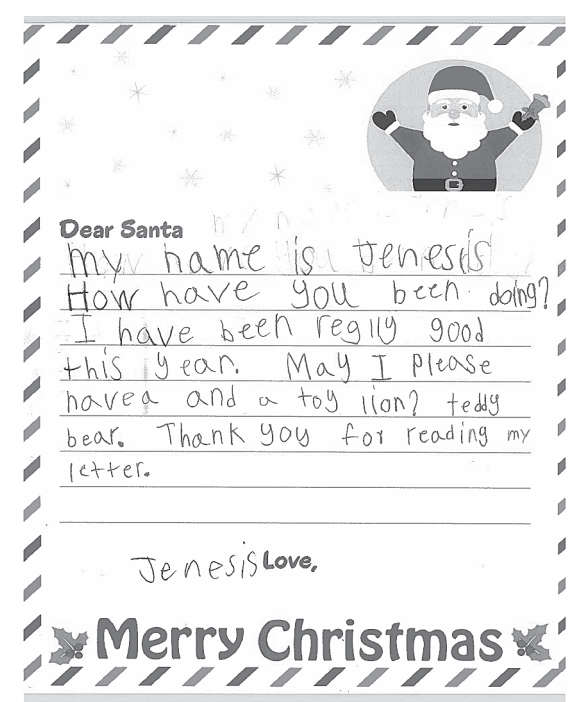 Dear Santa
my name is Jenesis
How have you been doing?
I have been reglly good
this year. May I please
havea and a toy lion? teddy
bear. Thank you for reading my
letter.
Jenesis Love,
Merry Christmas